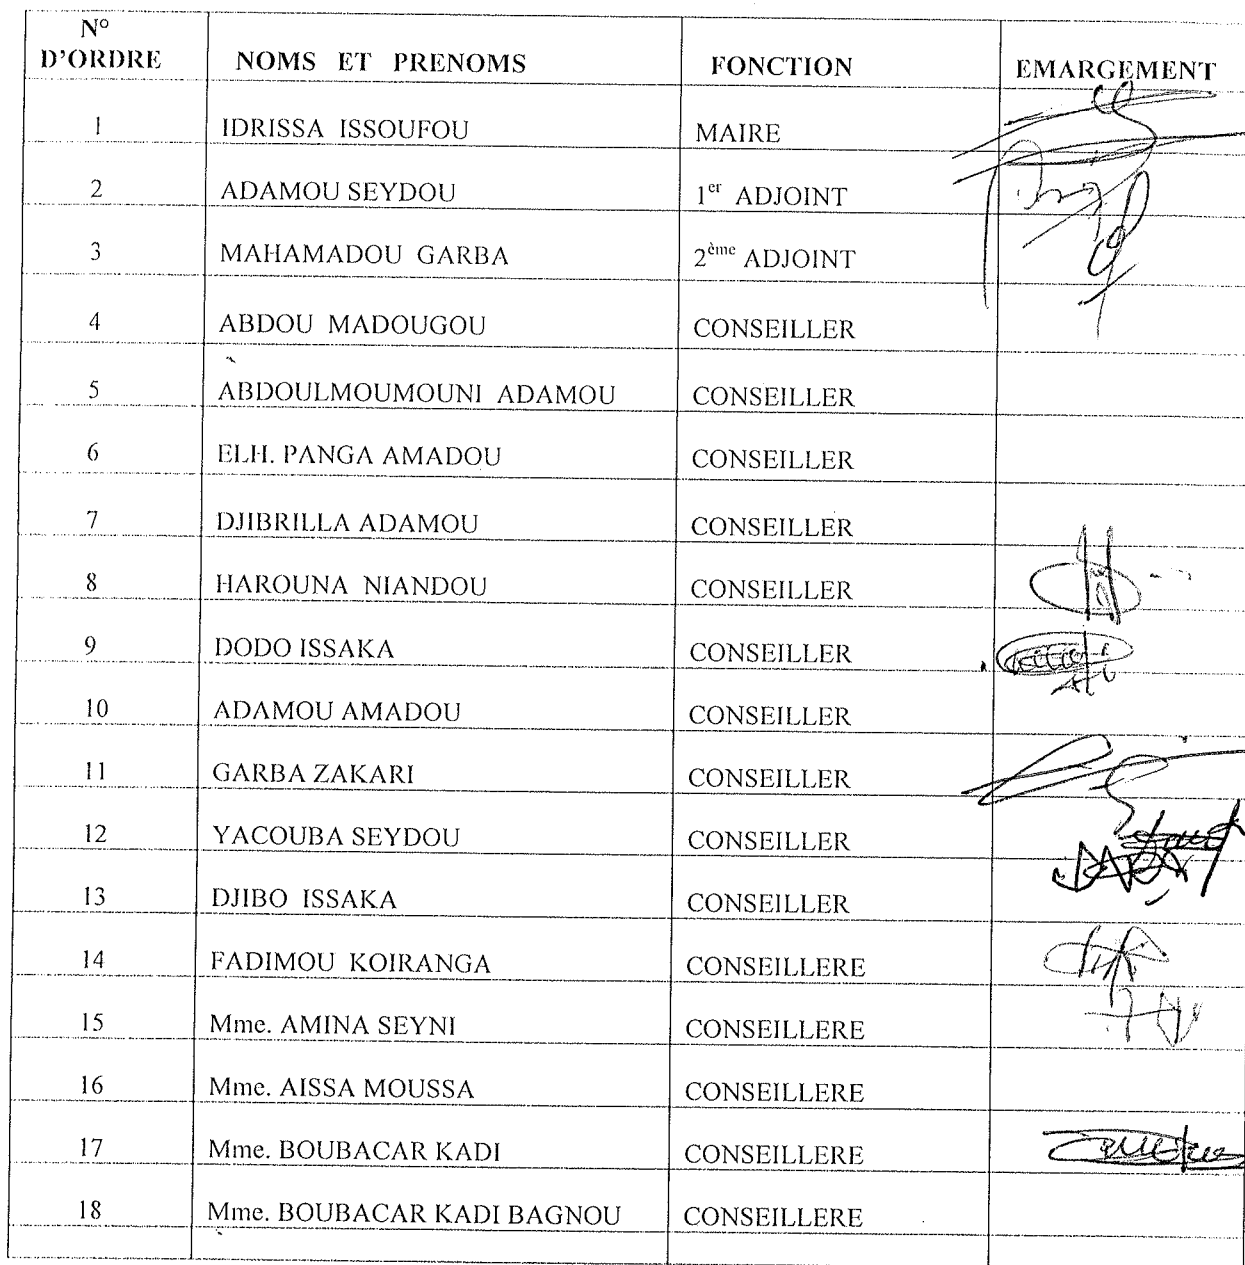 N° D'ORDRE NOMS ET PRENOMS FONCTION EMARGEMENT
1 IDRISSA ISSOUFOU MAIRE
2 ADAMOU SEYDOU 1er ADJOINT
3 MAHAMADOU GARBA 2ème ADJOINT
4 ABDOU MADOUGOU CONSEILLER
5 ABDOULMOUMOUNI ADAMOU CONSEILLER
6 ELH. PANGA AMADOU CONSEILLER
7 DJIBRILLA ADAMOU CONSEILLER
8 HAROUNA NIANDOU CONSEILLER
9 DODO ISSAKA CONSEILLER
10 ADAMOU AMADOU CONSEILLER
11 GARBA ZAKARI CONSEILLER
12 YACOUBA SEYDOU CONSEILLER
13 DJIBO ISSAKA CONSEILLER
14 FADIMOU KOIRANGA CONSEILLERE
15 Mme. AMINA SEYNI CONSEILLERE
16 Mme. AISSA MOUSSA CONSEILLERE
17 Mme. BOUBACAR KADI CONSEILLERE
18 Mme. BOUBACAR KADI BAGNOU CONSEILLERE